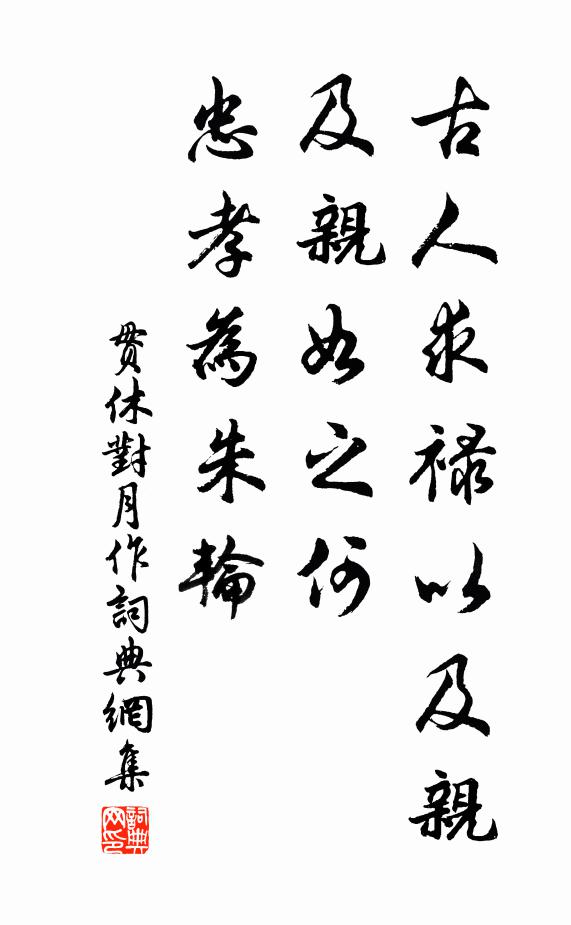 古人求祿以及親
及親如之何
忠孝為朱輪
貫休對月作詞典網集
詞典网印